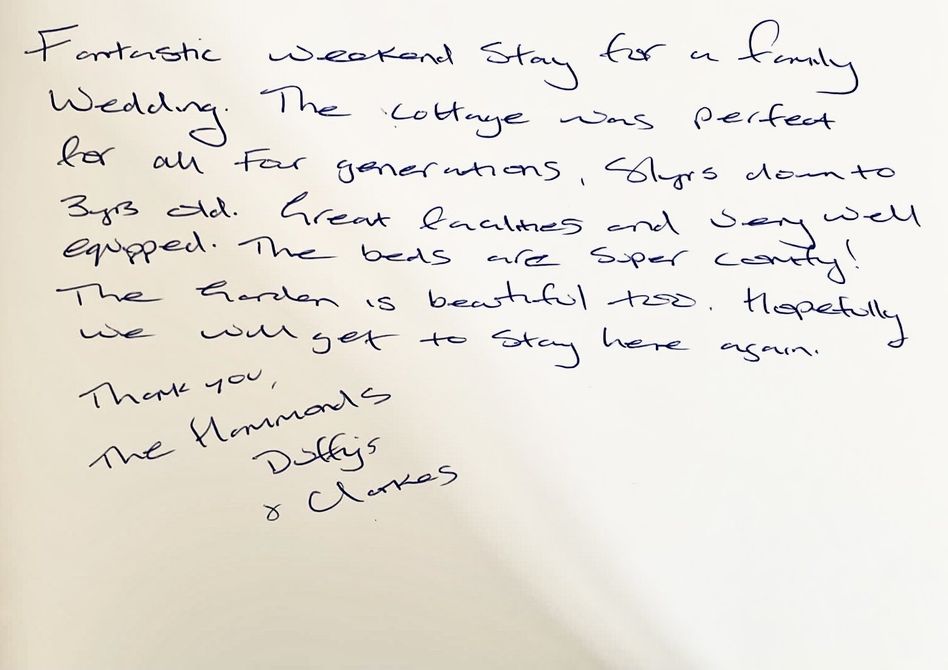 Fantastic weekend stay for a family
Wedding. The cottage was perfect
for all four generations, 81yrs down to
3yrs old. Great facilities and very well
equipped. The beds are super comfy!
The Garden is beautiful too. Hopefully
we will get to stay here again.
Thank you,
The Hammonds
Duffys
& Clarkes